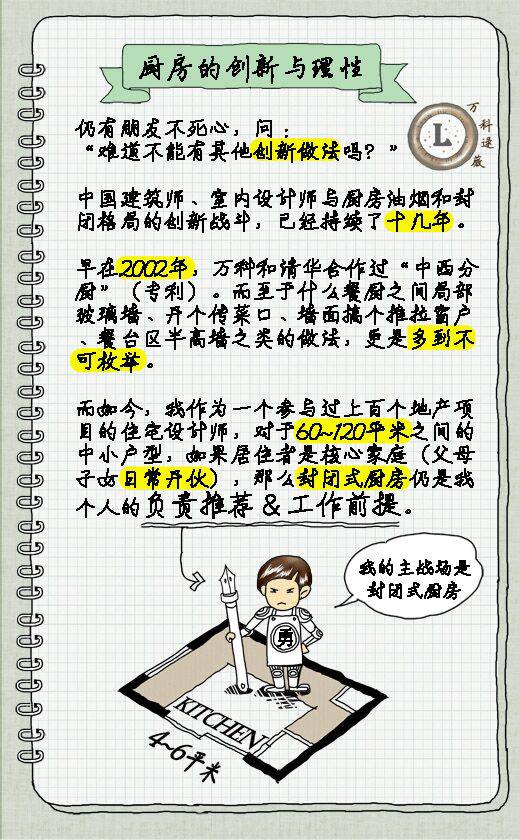 厨房的创新与理性
L
万科逯薇
仍有朋友不死心，问：
“难道不能有其他创新做法吗？”
中国建筑师、室内设计师与厨房油烟和封
闭格局的创新战斗，已经持续了十几年。
早在2002年，万科和清华合作过“中西分
厨”（专利）。而至于什么餐厨之间局部
玻璃墙、开个传菜口、墙面搞个推拉窗户
、餐台区半高墙之类的做法，更是多到不
可枚举。
而如今，我作为一个参与过上百个地产项
目的住宅设计师，对于60~120平米之间的
中小户型，如果居住者是核心家庭（父母
子女日常开伙），那么封闭式厨房仍是我
个人的负责推荐&工作前提。
我的主战场是
封闭式厨房
勇
KITCHEN
4~6平米